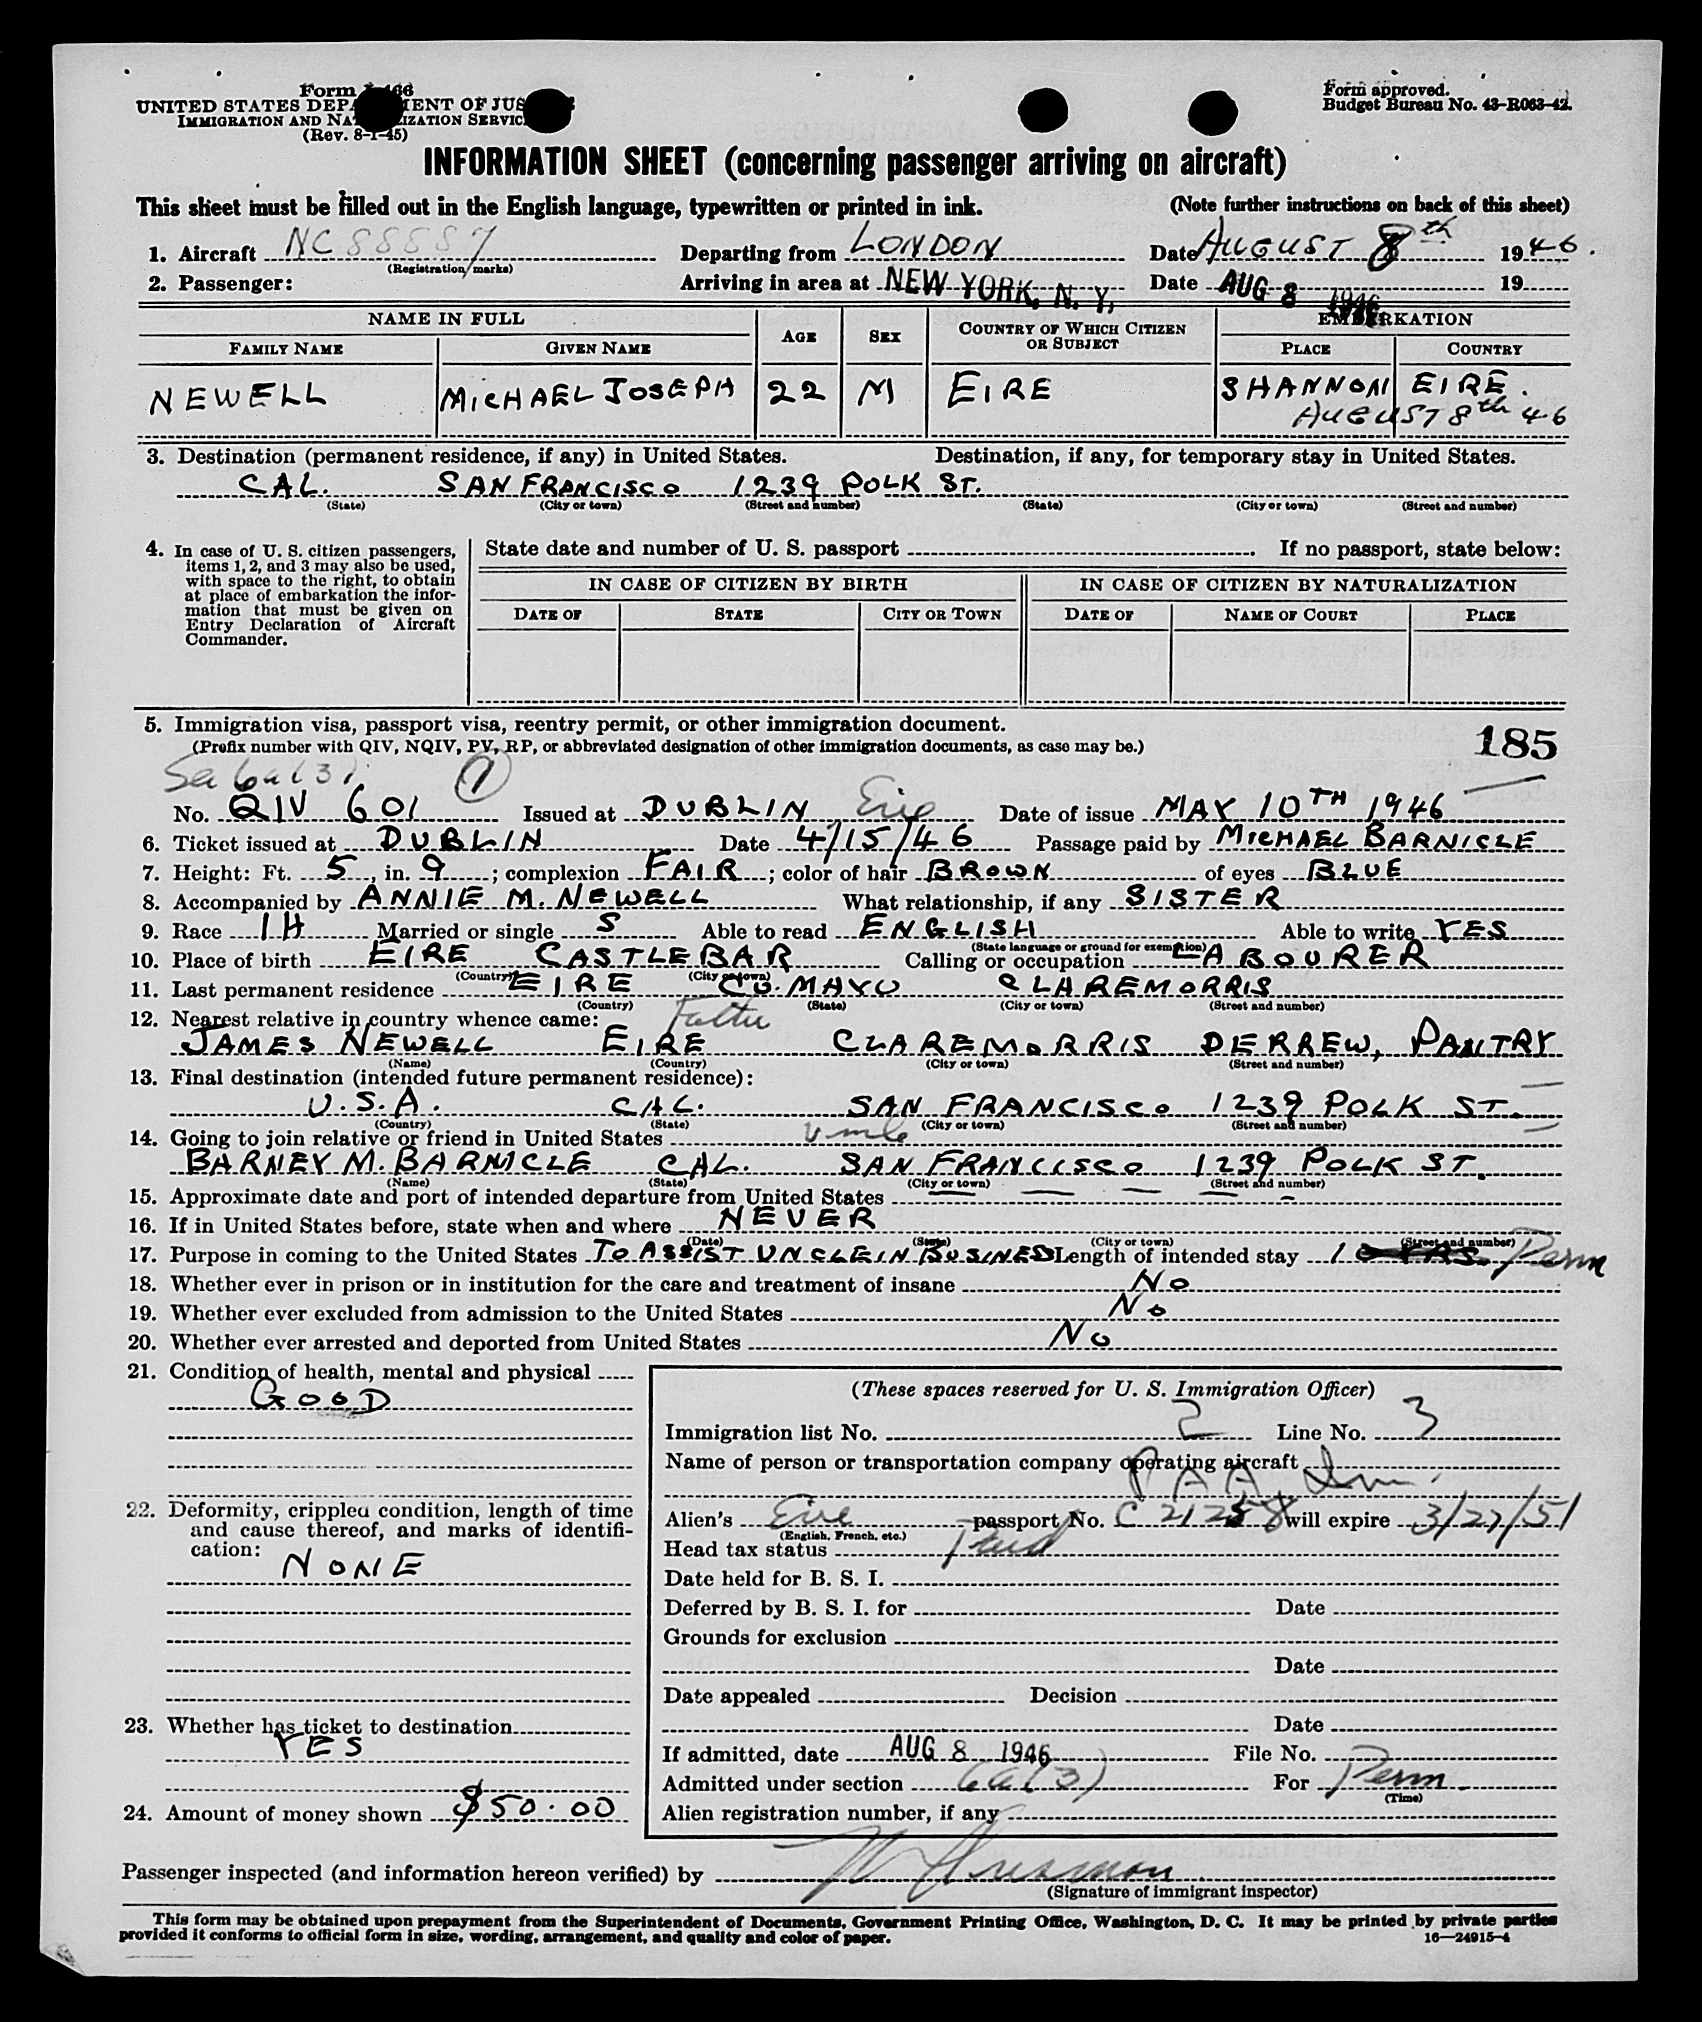 Form I-466
UNITED STATES DEPARTMENT OF JUSTICE
IMMIGRATION AND NATURALIZATION SERVICE
(Rev. 8-1-45)
Form approved.
Budget Bureau No. 43-R063-42.
INFORMATION SHEET (concerning passenger arriving on aircraft)
This sheet must be filled out in the English language, typewritten or printed in ink. (Note further instructions on back of this sheet)
1. Aircraft NC 88887 Departing from LONDON Date AUGUST 8th 1946.
(Registration marks)
2. Passenger: Arriving in area at NEW YORK, N. Y. Date AUG 8 1946 19
NAME IN FULL AGE SEX COUNTRY OF WHICH CITIZEN OR SUBJECT EMBARKATION
FAMILY NAME GIVEN NAME PLACE COUNTRY
NEWELL MICHAEL JOSEPH 22 M EIRE SHANNON EIRE.
AUGUST 8th 46
3. Destination (permanent residence, if any) in United States. Destination, if any, for temporary stay in United States.
CAL. SAN FRANCISCO 1239 POLK ST.
(State) (City or town) (Street and number) (State) (City or town) (Street and number)
4. In case of U. S. citizen passengers, items 1, 2, and 3 may also be used, with space to the right, to obtain at place of embarkation the information that must be given on Entry Declaration of Aircraft Commander.
State date and number of U. S. passport . If no passport, state below:
IN CASE OF CITIZEN BY BIRTH IN CASE OF CITIZEN BY NATURALIZATION
DATE OF STATE CITY OR TOWN DATE OF NAME OF COURT PLACE
5. Immigration visa, passport visa, reentry permit, or other immigration document.
(Prefix number with QIV, NQIV, PV, RP, or abbreviated designation of other immigration documents, as case may be.) 185
Sec 6a(3)
No. QIV 601 Issued at DUBLIN Eire Date of issue MAY 10TH 1946
6. Ticket issued at DUBLIN Date 4/15/46 Passage paid by MICHAEL BARNICLE
7. Height: Ft. 5, in. 9; complexion FAIR; color of hair BROWN of eyes BLUE
8. Accompanied by ANNIE M. NEWELL What relationship, if any SISTER
9. Race IH Married or single S Able to read ENGLISH Able to write YES
(State language or ground for exemption)
10. Place of birth EIRE CASTLEBAR Calling or occupation LABOURER
(Country) (City or town)
11. Last permanent residence EIRE CO. MAYO CLAREMORRIS
(Country) (State) (City or town) (Street and number)
12. Nearest relative in country whence came: Father
JAMES NEWELL EIRE CLAREMORRIS DERREW, PANTRY
(Name) (Country) (City or town) (Street and number)
13. Final destination (intended future permanent residence):
U.S.A. CAL. SAN FRANCISCO 1239 POLK ST.
(Country) (State) (City or town) (Street and number)
14. Going to join relative or friend in United States uncle
BARNEY M. BARNICLE CAL. SAN FRANCISCO 1239 POLK ST.
(Name) (State) (City or town) (Street and number)
15. Approximate date and port of intended departure from United States
16. If in United States before, state when and where NEVER
(Date) (State) (City or town) (Street and number)
17. Purpose in coming to the United States TO ASSIST UNCLE IN BUSINES Length of intended stay 10 YRS. Perm
18. Whether ever in prison or in institution for the care and treatment of insane No
19. Whether ever excluded from admission to the United States No
20. Whether ever arrested and deported from United States No
21. Condition of health, mental and physical
GOOD
22. Deformity, crippled condition, length of time and cause thereof, and marks of identification:
NONE
23. Whether has ticket to destination
YES
24. Amount of money shown $50.00
(These spaces reserved for U. S. Immigration Officer)
Immigration list No. 2 Line No. 3
Name of person or transportation company operating aircraft
PAA
Alien's Eire passport No. C 21258 will expire 3/27/51
(English, French, etc.)
Head tax status Paid
Date held for B. S. I.
Deferred by B. S. I. for Date
Grounds for exclusion
Date
Date appealed Decision
Date
If admitted, date AUG 8 1946 File No.
Admitted under section 6a(3) For Perm
(Time)
Alien registration number, if any
Passenger inspected (and information hereon verified) by
(Signature of immigrant inspector)
This form may be obtained upon prepayment from the Superintendent of Documents, Government Printing Office, Washington, D. C. It may be printed by private parties
provided it conforms to official form in size, wording, arrangement, and quality and color of paper. 16—24915-4